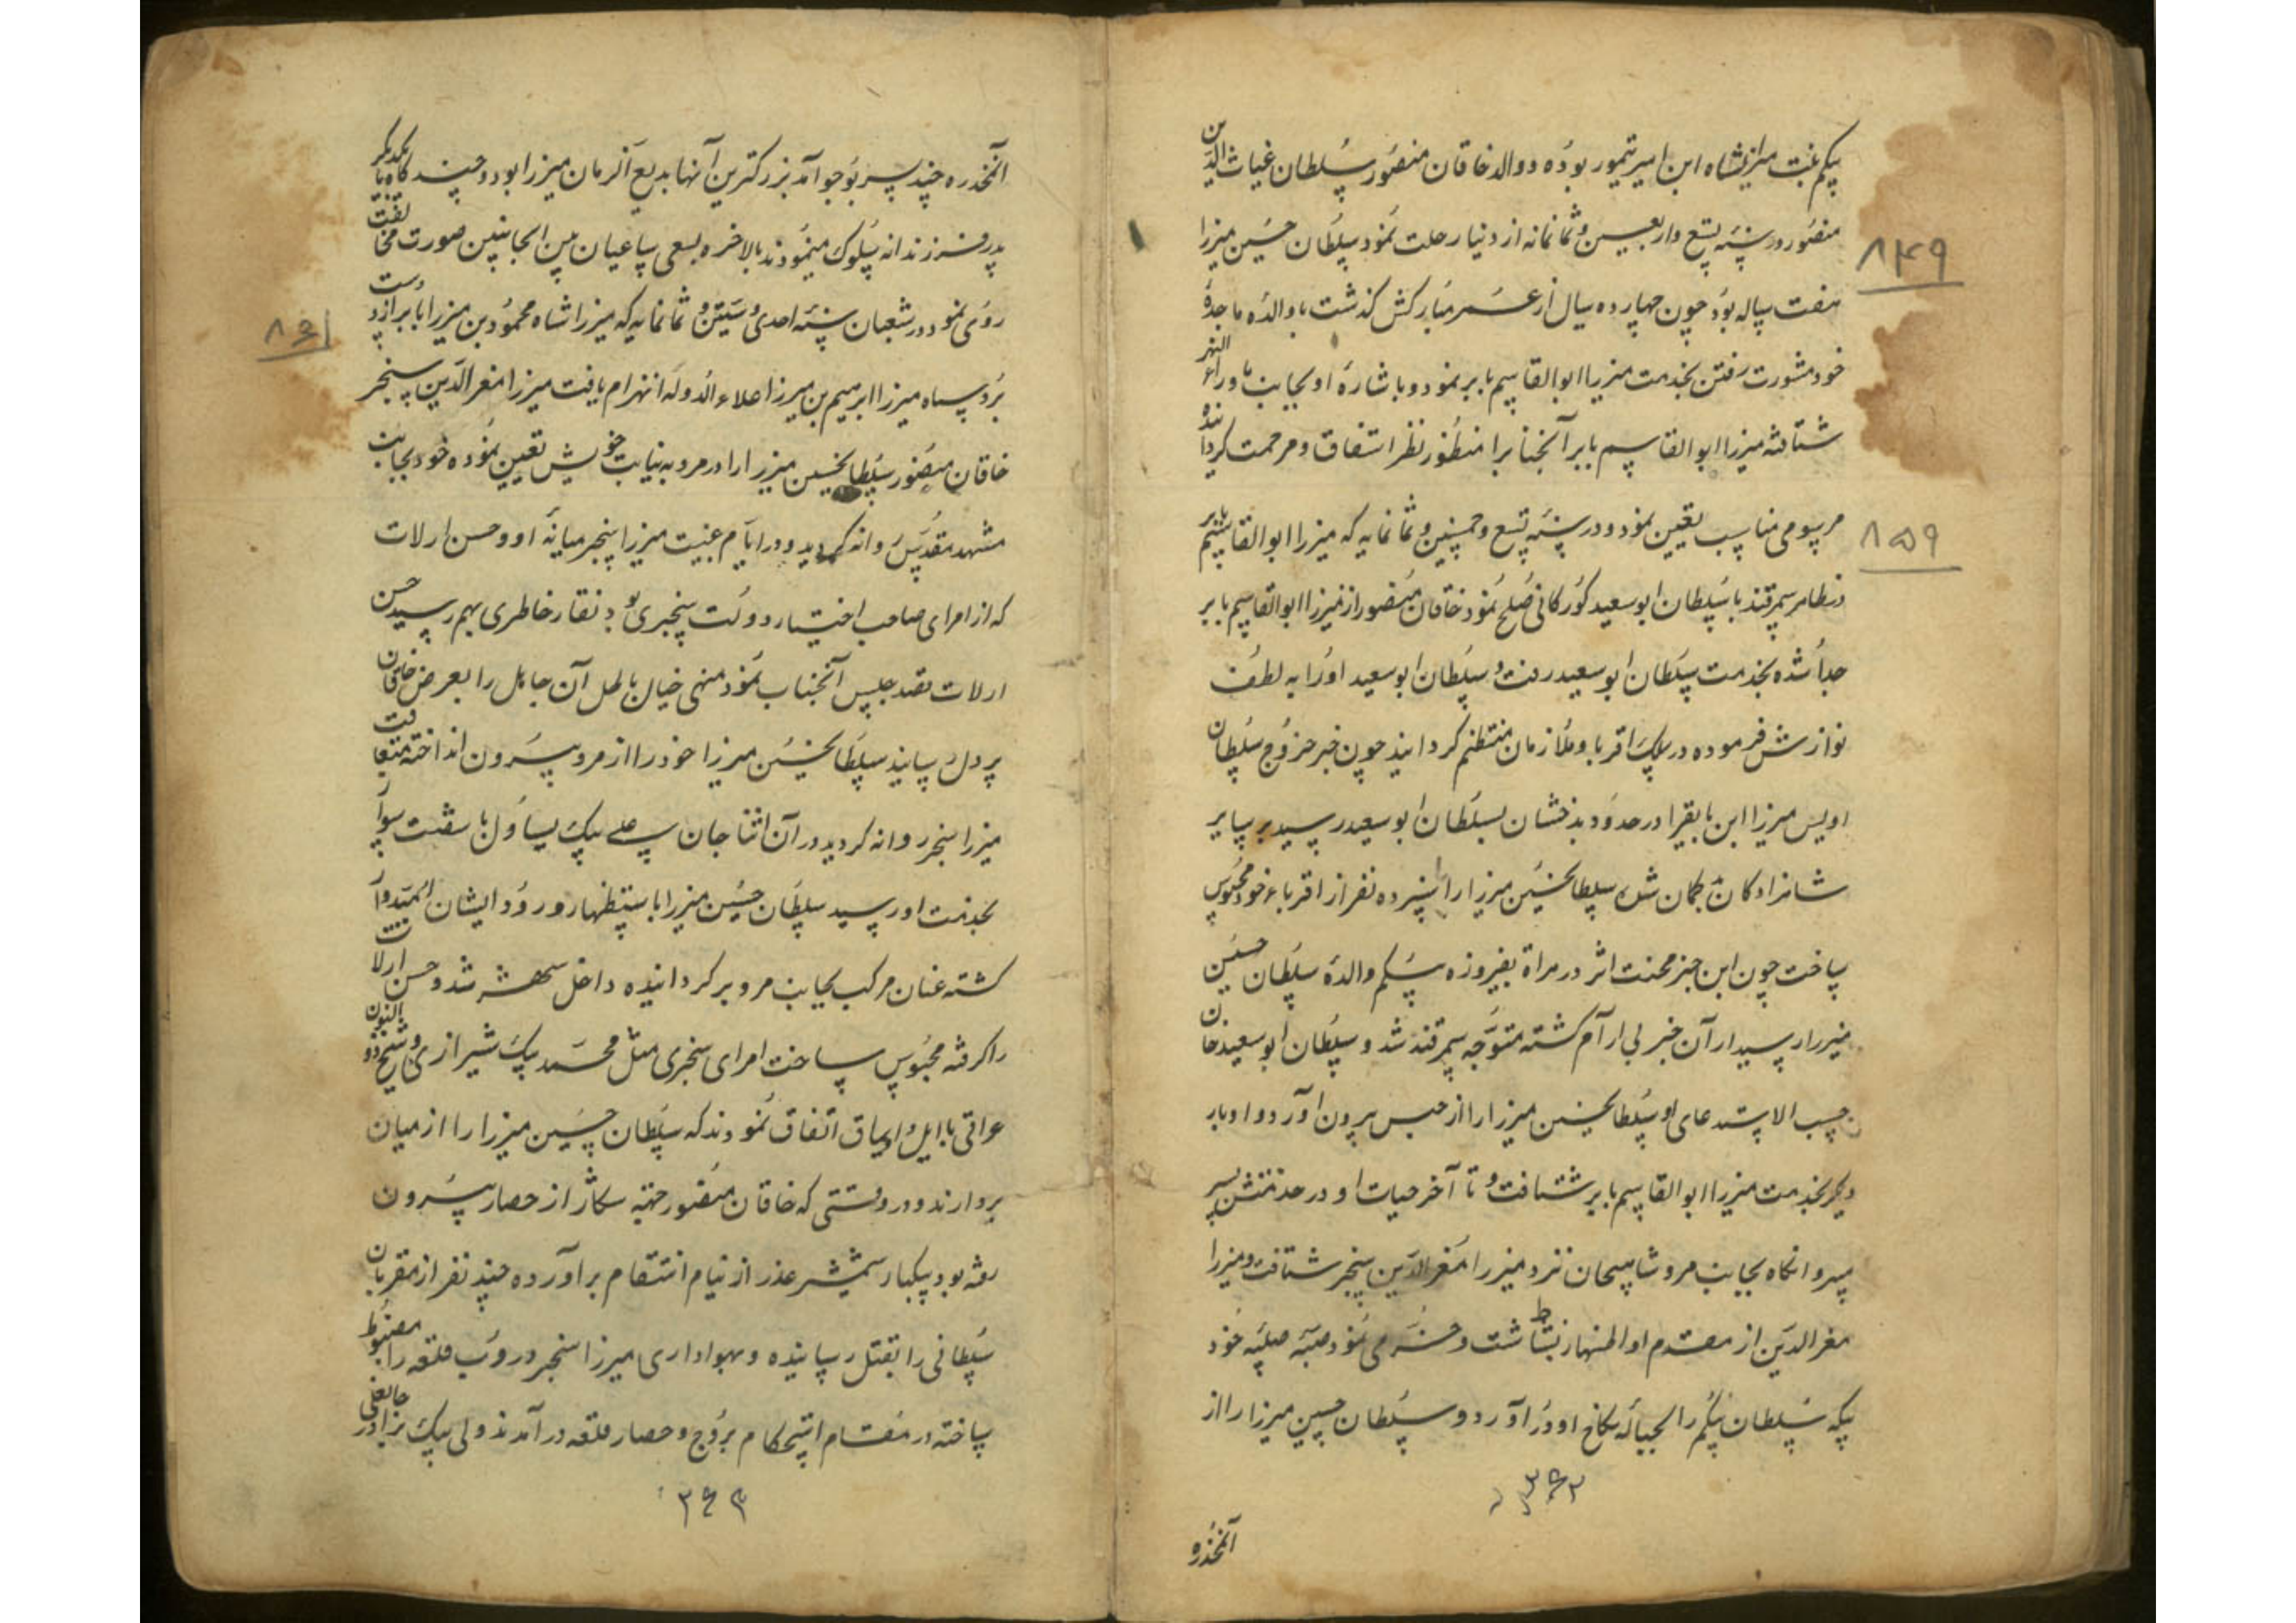 بیکم بنت میرانشاه ابن امیر تیمور بوده و والد خاقان منصور سلطان غیاث الدین
منصور در سنه تسع و اربعین و ثمانمائه از دنیا رحلت نمود سلطان حسین میرزا
۸۴۹
هفت ساله بود چون چهارده سال از عمر مبارکش گذشت با والده ماجدهٔ
خود مشورت رفتن بخدمت میرزا ابوالقاسم بابر نمود و باشارهٔ او بجانب ماوراء النهر
شتافته میرزا ابوالقاسم بابر آنجنابرا منظور نظر اشفاق و مرحمت گردانیده
مرسومی مناسب تعیین نمود و در سنه تسع و خمسین و ثمانمایه که میرزا ابوالقاسم بابر
۸۵۹
در ظاهر سمرقند با سلطان ابوسعید گورکانی صلح نمود خاقان منصور از میرزا ابوالقاسم بابر
جدا شده بخدمت سلطان ابوسعید رفت و سلطان ابوسعید او را به لطف
نوازش فرموده در سلک اقربا و ملازمان منتظم گردانید چون خبر خروج سلطان
اویس میرزا ابن بایقرا در حدود بدخشان بسلطان ابوسعید رسید بر سایر
شاهزادگان بدگمان شده سلطانحسین میرزا را با سیزده نفر از اقرباء خود محبوس
ساخت چون این خبر محنت اثر در هراة بفیروزه بیکم والدهٔ سلطان حسین
میرزا رسید از آن خبر بی آرام گشته متوجه سمرقند شد و سلطان ابوسعید خان
حسب الاستدعای او سلطانحسین میرزا را از حبس بیرون آورد و او بار
دیگر بخدمت میرزا ابوالقاسم بابر شتافت و تا آخر حیات او در خدمتش بسر
میبرد آنگاه بجانب مرو شاهیجان نزد میرزا مغر الدین سنجر شتافت و میرزا
مغر الدین از مقدم او اظهار بشاشت و خرمی نمود صبیه صلبیه خود
بیکه سلطان بیگم را بحباله نکاح او در آورد و سلطان حسین میرزا را از
۳۶۲
آنمخدره
آنمخدره چند پسر بوجود آمد بزرگترین آنها بدیع الزمان میرزا بود و چند گاه با یکدیگر
پدر فرزندانه سلوک مینمودند بالاخره بسعی ساعیان بین الجانبین صورت مخالفت
روی نمود در شعبان سنه احدی و ستین و ثمانمایه که میرزا شاه محمود بن میرزا بابر از دست
۸۶۱
برد سپاه میرزا ابرهیم بن میرزا علاء الدوله انهزام یافت میرزا مغر الدین سنجر
خاقان منصور سلطانحسین میرزا را در مرو به نیابت خویش تعیین نموده خود بجانب
مشهد مقدس روانه گردید و در ایام غیبت میرزا سنجر میانهٔ او و حسن ارلات
که از امرای صاحب اختیار دولت سنجری بود نقار خاطری بهم رسید حسن
ارلات قصد جلیس آنجناب نمود منهی خیال باطل آن جاهل را بعرض خاقان
پر دل رسانید سلطانحسین میرزا خود را از مرو بیرون انداخته متعاقب
میرزا سنجر روانه گردید در آن اثنا جان علی بیک یساول با شصت سوار
بخدمت او رسید سلطان حسین میرزا باستظهار ورود ایشان امیدوار
گشته عنان مرکب بجانب مرو بر گردانیده داخل شهر شد و حسن ارلات
را گرفته محبوس ساخت امرای سنجری مثل محمد بیک شیرازی و شیخ ذو النون
عراقی با ایل و ایماق اتفاق نمودند که سلطان حسین میرزا را از میان
بردارند و در وقتی که خاقان منصور جهته شکار از حصار بیرون
رفته بود بیکبار شمشیر غدر از نیام انتقام بر آورده چند نفر از مقربان
سلطانی را بقتل رسانیده و بهواداری میرزا سنجر دروب قلعه را مضبوط
ساخته در مقام استحکام بروج و حصار قلعه در آمدند ولی بیک برادر
۳۶۳